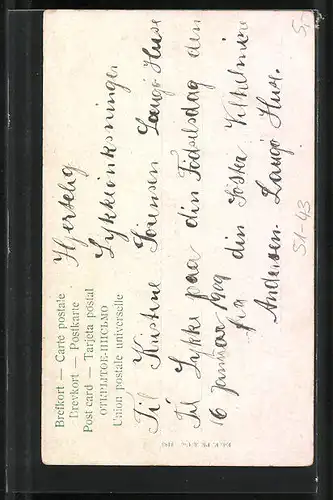 Brefkort — Carte postale
Brevkort — Postkarte
Post card — Tarjeta postal
ОТКРЫТОЕ ПИСЬМО
Union postale universelle
Hjertelig
Lykkeönksninger
Til Kirstine Sörensen Langö Huse
Til Lykke paa din Födselsdag den
16 Januar
fra din Söster Vilhelmine
Andersen. Langö Huse.
51-43
5,-